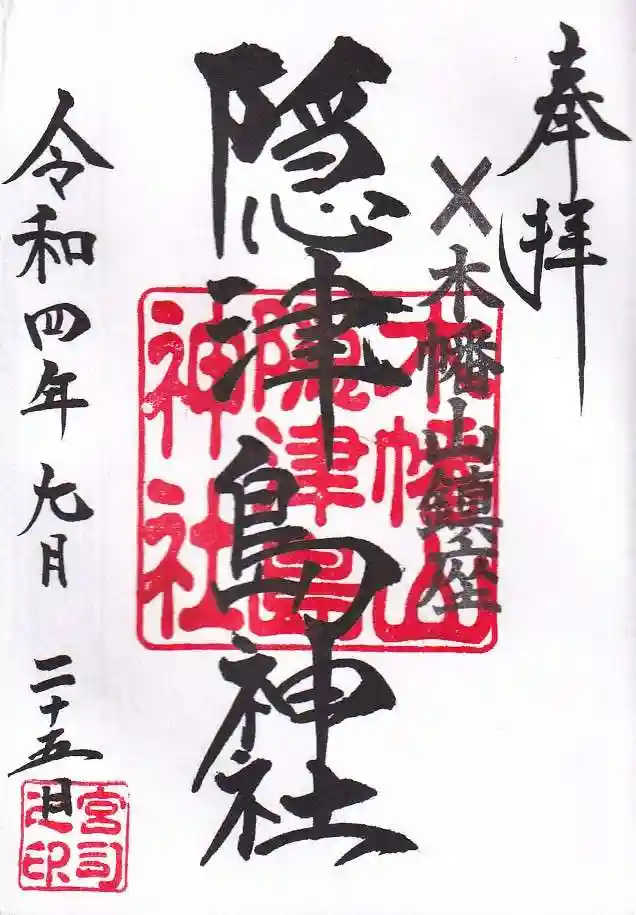 奉拝
木幡山鎮座
隠津島神社
木幡山
隠津島
神社
令和四年九月二十五日
宮司
之印